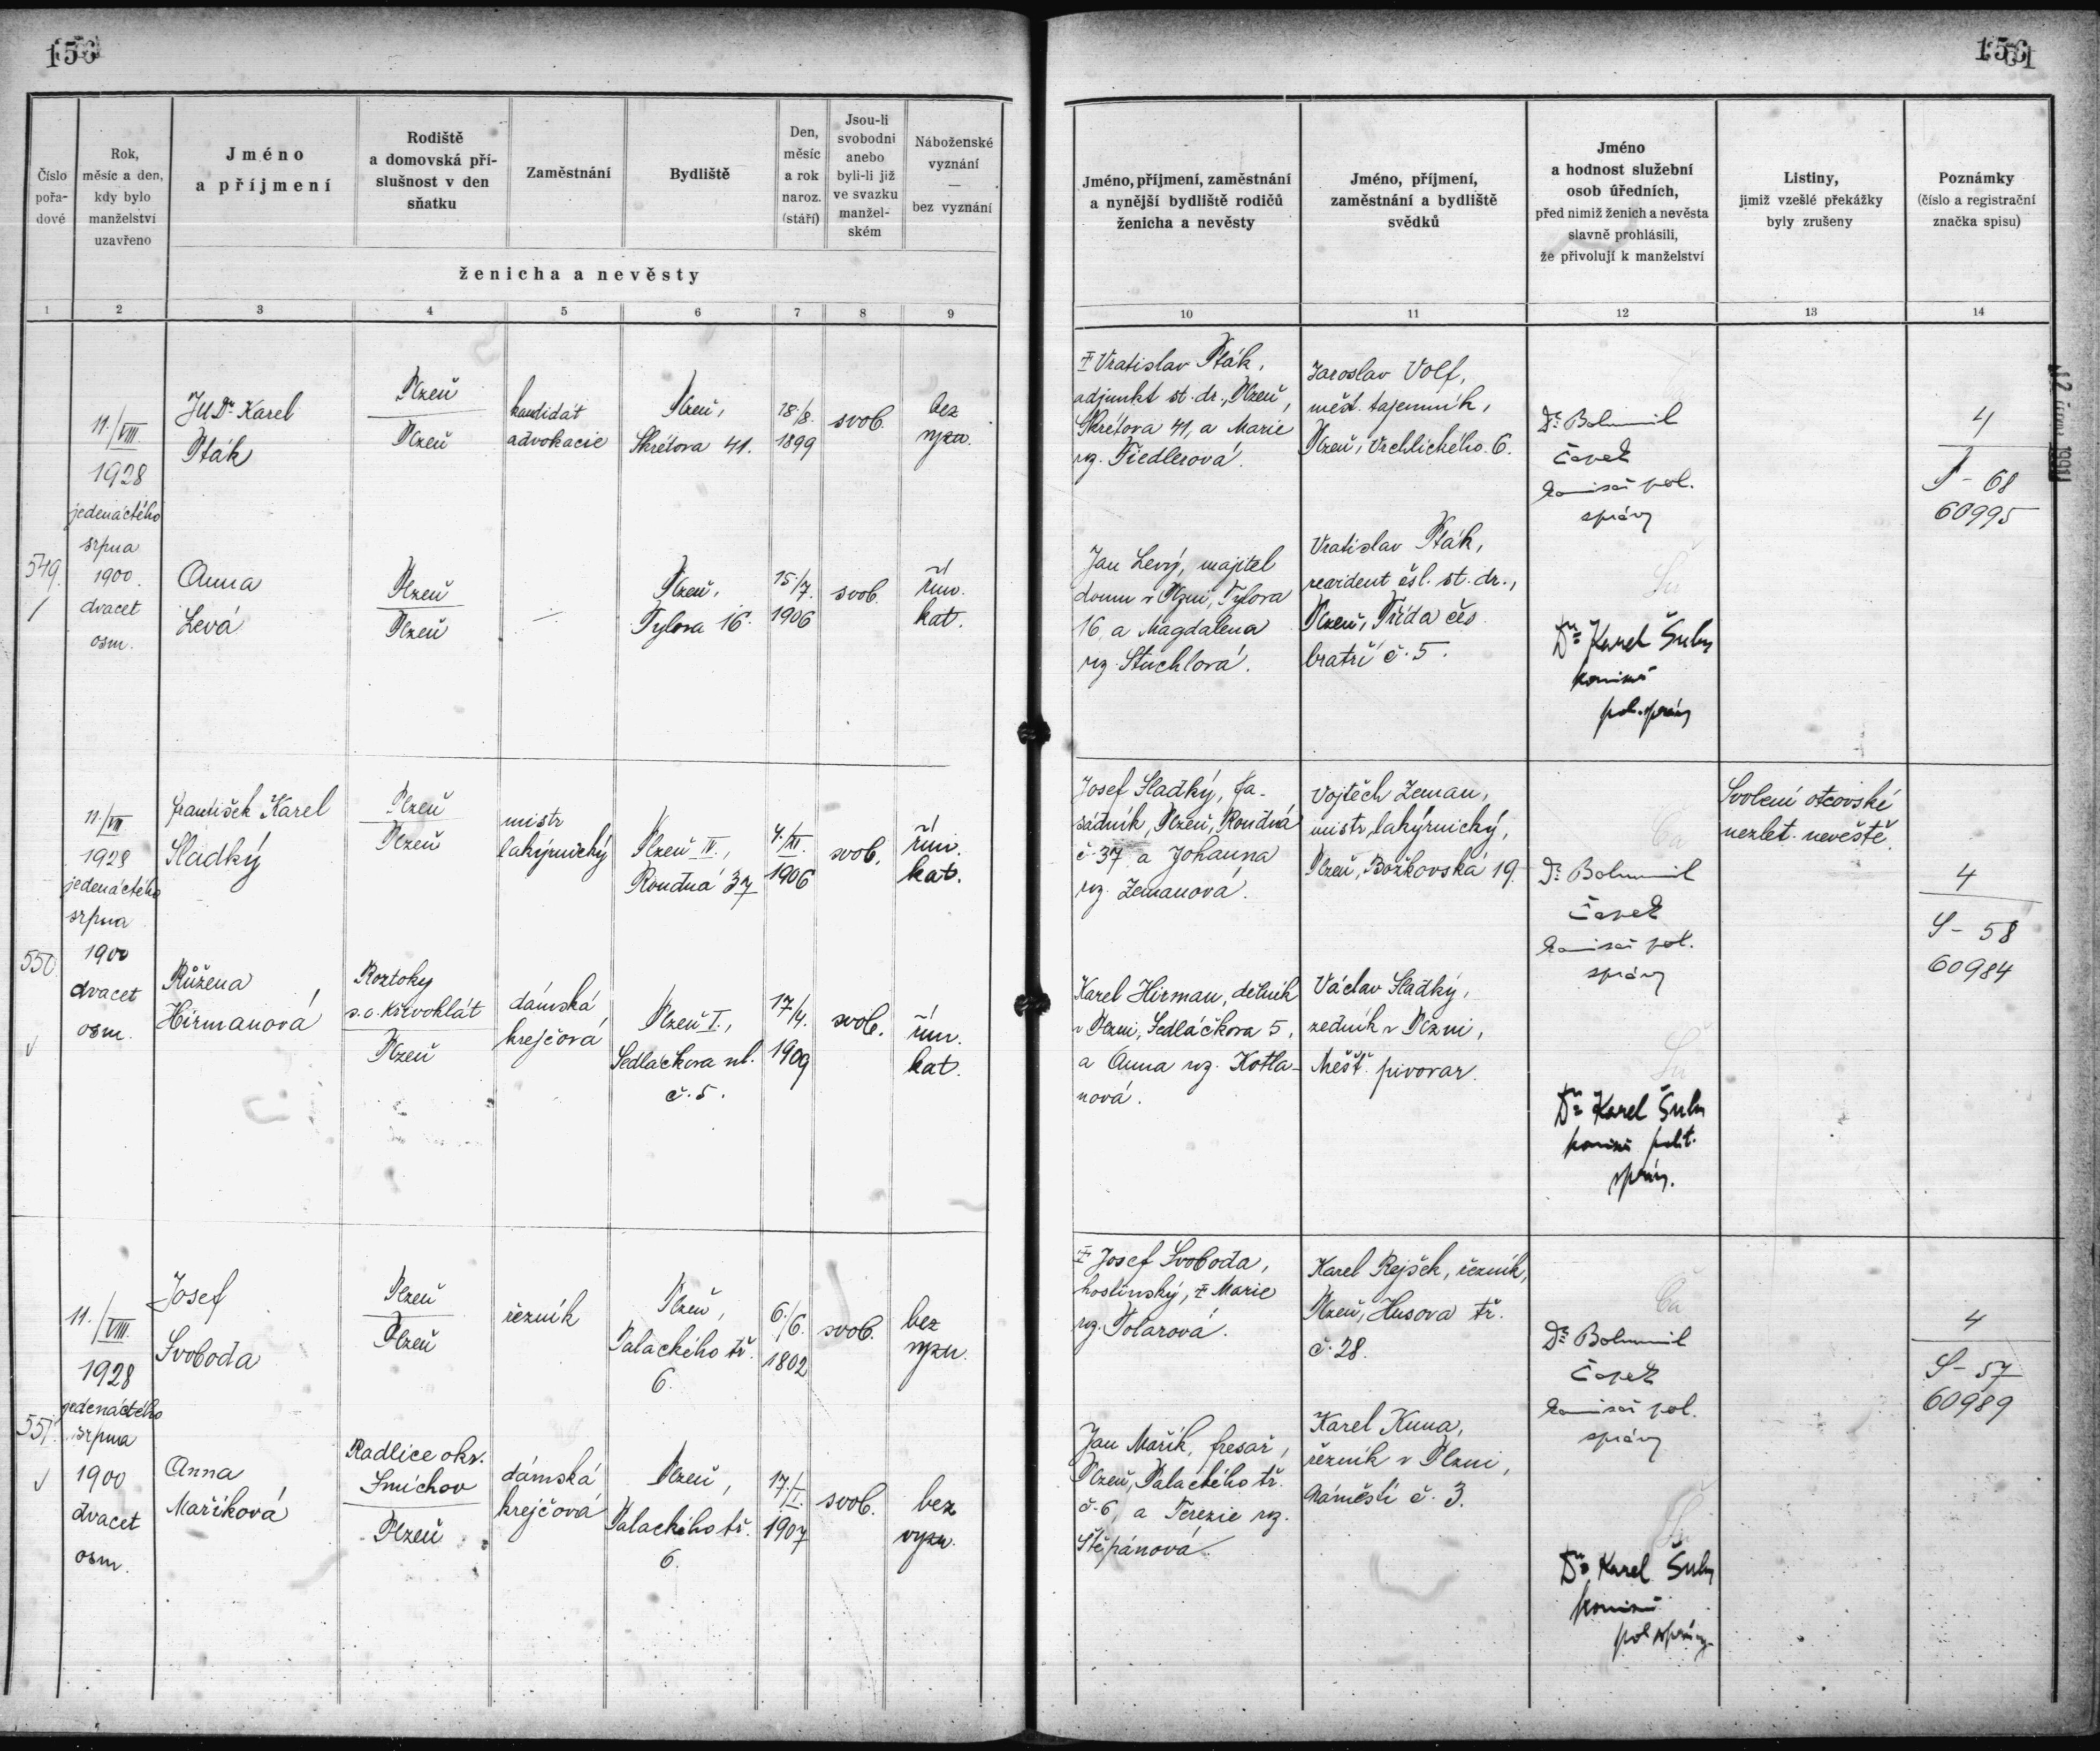 Číslo
pořa-
dové
Rok,
měsíc a den,
kdy bylo
manželství
uzavřeno
Jméno
a příjmení
Rodiště
a domovská pří-
slušnost v den
sňatku
Zaměstnání
Bydliště
Den,
měsíc
a rok
naroz.
(stáří)
Jsou-li
svobodni
anebo
byli-li již
ve svazku
manžel-
ském
Náboženské
vyznání
—
bez vyznání
ženicha a nevěsty
1 2 3 4 5 6 7 8 9
Jméno, příjmení, zaměstnání
a nynější bydliště rodičů
ženicha a nevěsty
Jméno, příjmení,
zaměstnání a bydliště
svědků
Jméno
a hodnost služební
osob úředních,
před nimiž ženich a nevěsta
slavně prohlásili,
že přivolují k manželství
Listiny,
jimiž vzešlé překážky
byly zrušeny
Poznámky
(číslo a registrační
značka spisu)
10 11 12 13 14
549.
11./VIII.
1928
jedenáctého
srpna
1900
dvacet
osm.
JUDr. Karel
Pták
Plzeň
Plzeň
kandidát
advokacie
Plzeň,
Škrétova 41.
18./8.
1899
svob.
bez
vyzn.
Anna
Levá
Plzeň
Plzeň
—
Plzeň,
Tylova 16.
15./7.
1906
svob.
řím.
kat.
‡ Vratislav Pták,
adjunkt st. dr., Plzeň,
Škrétova 41, a Marie
roz. Fiedlerová.
Jan Levý, majitel
domu v Plzni, Tylova
16, a Magdalena
roz. Stuchlová.
Jaroslav Volf,
měst. tajemník,
Plzeň, Vrchlického 6.
Vratislav Pták,
revident čsl. st. dr.,
Plzeň, Třída čes.
bratří č. 5.
Dr. Bohumil
Čapek
komisař pol.
správy
Dr. Karel Šulc
komisař
pol. správy
4
P - 68
60995
550.
11./VIII
1928
jedenáctého
srpna
1900
dvacet
osm.
František Karel
Sladký
Plzeň
Plzeň
mistr
lakýrnický
Plzeň IV.,
Roudná 37
4./XI.
1906
svob.
řím.
kat.
Růžena
Hirmanová
Roztoky
s. o. Křivoklát
Plzeň
dámská
krejčová
Plzeň I.,
Sedláčkova ul.
č. 5.
17./4.
1909
svob.
řím.
kat.
Josef Sladký, fa-
sádník, Plzeň, Roudná
č. 37 a Johanna
roz. Zemanová.
Karel Hirman, dělník
v Plzni, Sedláčkova 5,
a Anna roz. Kotla-
nová.
Vojtěch Zeman,
mistr lakýrnický,
Plzeň, Božkovská 19.
Václav Sladký,
zedník v Plzni,
Měšť. pivovar.
Dr. Bohumil
Čapek
komisař pol.
správy
Dr. Karel Šulc
komisař polit.
správy.
Svolení otcovské
nezlet. nevěstě.
4
S - 58
60984
551.
11./VIII.
1928
jedenáctého
srpna
1900
dvacet
osm.
Josef
Svoboda
Plzeň
Plzeň
řezník
Plzeň,
Palackého tř.
6.
6./6.
1802
svob.
bez
vyzn.
Anna
Maříková
Radlice okr.
Smíchov
Plzeň
dámská
krejčová
Plzeň,
Palackého tř.
6.
17./I.
1907
svob.
bez
vyzn.
‡ Josef Svoboda,
hostinský, ‡ Marie
roz. Tolarová.
Jan Mařík, fresař,
Plzeň, Palackého tř.
č. 6, a Terezie roz.
Štěpánová.
Karel Rejšek, řezník,
Plzeň, Husova tř.
č. 28.
Karel Kuna,
řezník v Plzni,
Náměstí č. 3.
Dr. Bohumil
Čapek
komisař pol.
správy
Dr. Karel Šulc
komisař
pol. správy
4
S - 57
60989